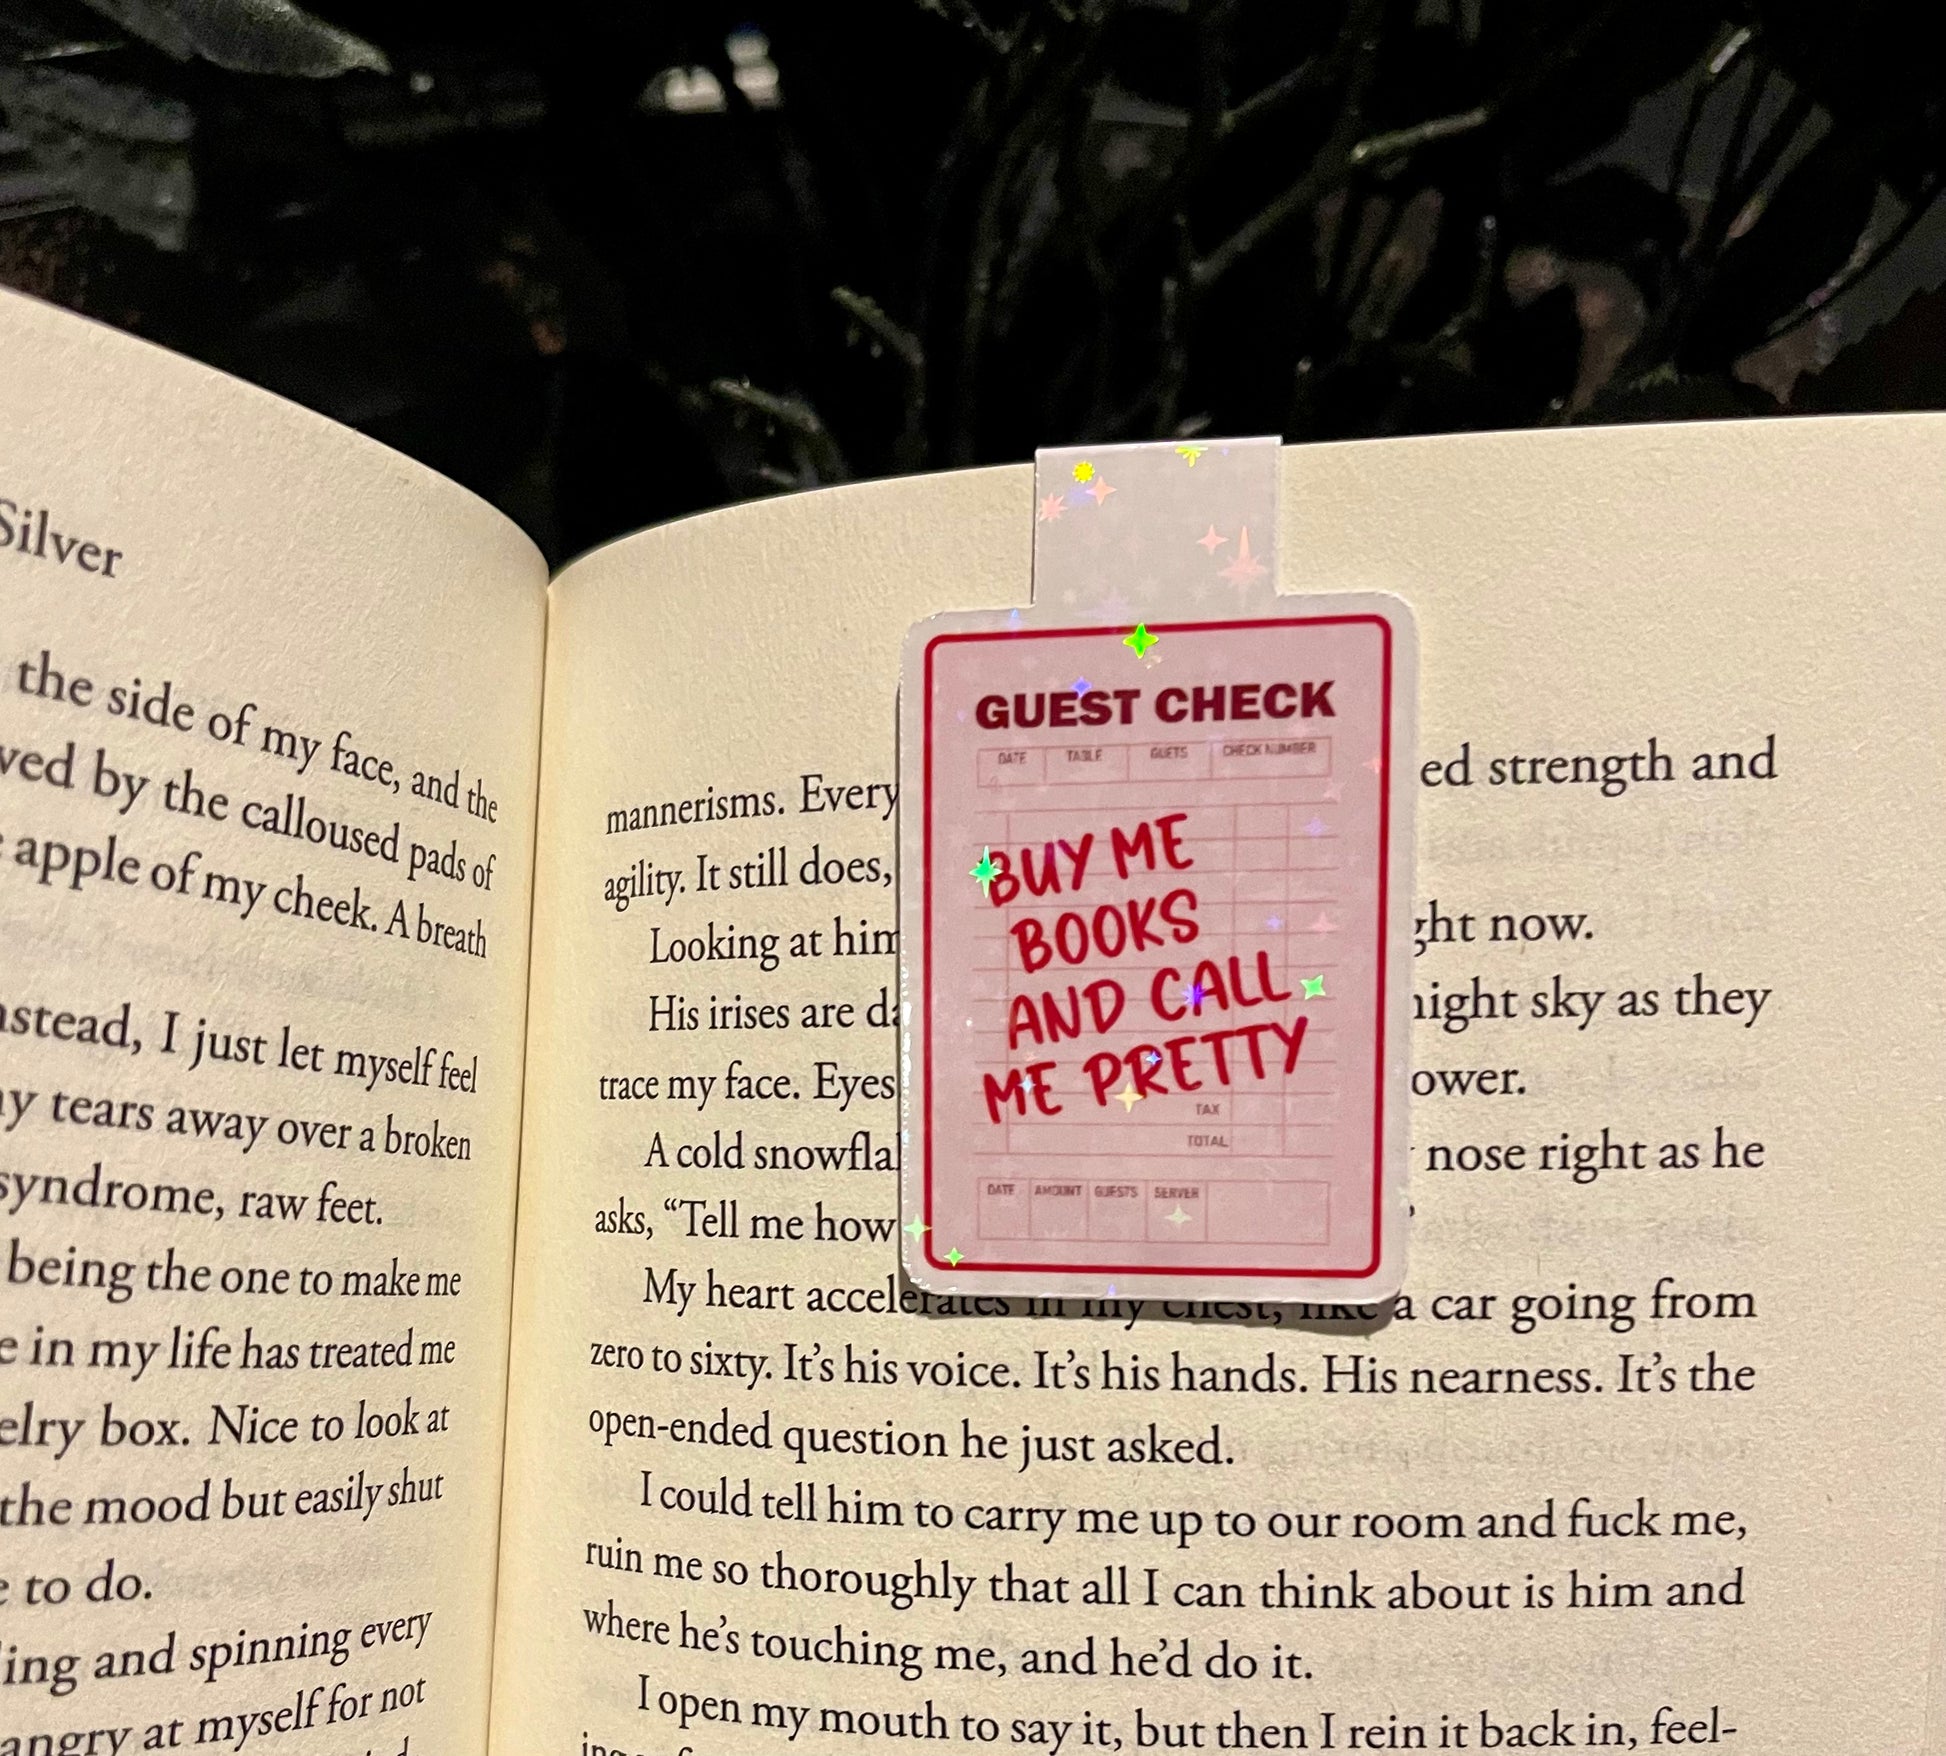 Silver
the side of my face, and the
by the calloused pads of
apple of my cheek. A breath
I just let myself feel
tears away over a broken
syndrome, raw feet.
being the one to make me
in my life has treated me
box. Nice to look at
the mood but easily shut
to do.
and spinning every
angry at myself for not
mannerisms. Every
strength and
agility. It still does,
Looking at him
now.
His irises are
night sky as they
trace my face. Eyes
A cold
nose right as he
asks, “Tell me how
My heart accelerates in my chest, like a car going from
zero to sixty. It’s his voice. It’s his hands. His nearness. It’s the
open-ended question he just asked.
I could tell him to carry me up to our room and fuck me,
ruin me so thoroughly that all I can think about is him and
where he’s touching me, and he’d do it.
I open my mouth to say it, but then I rein it back in, feel-
GUEST CHECK
DATE TABLE GUETS CHECK NUMBER
BUY ME
BOOKS
AND CALL
ME PRETTY
TAX
TOTAL
DATE AMOUNT GUESTS SERVER